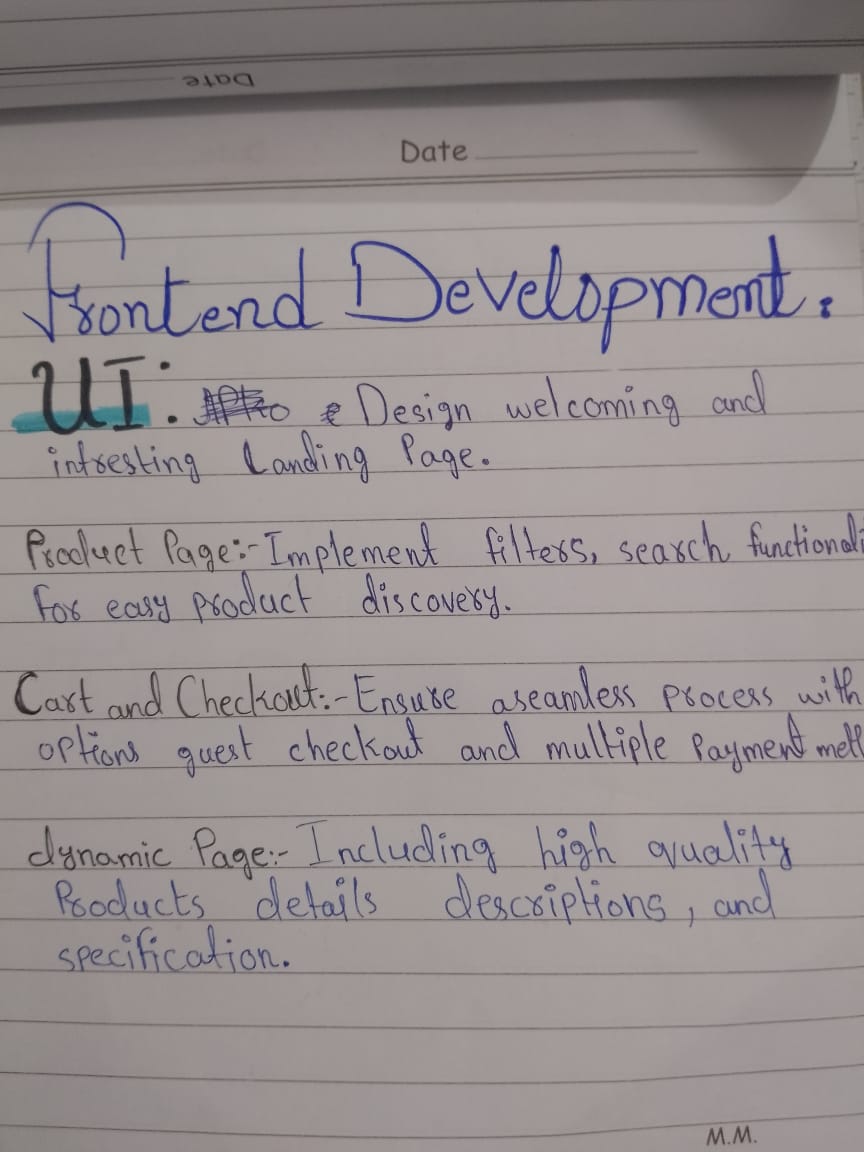 Date
Date
Frontend Development.
UI: Design welcoming and
intresting Landing Page.
Product Page:- Implement filters, search functionali
for easy product discovery.
Cart and Checkout:- Ensure aseamless process with
options guest checkout and multiple Payment meth
dynamic Page:- Including high quality
Products details descriptions, and
specification.
M.M.